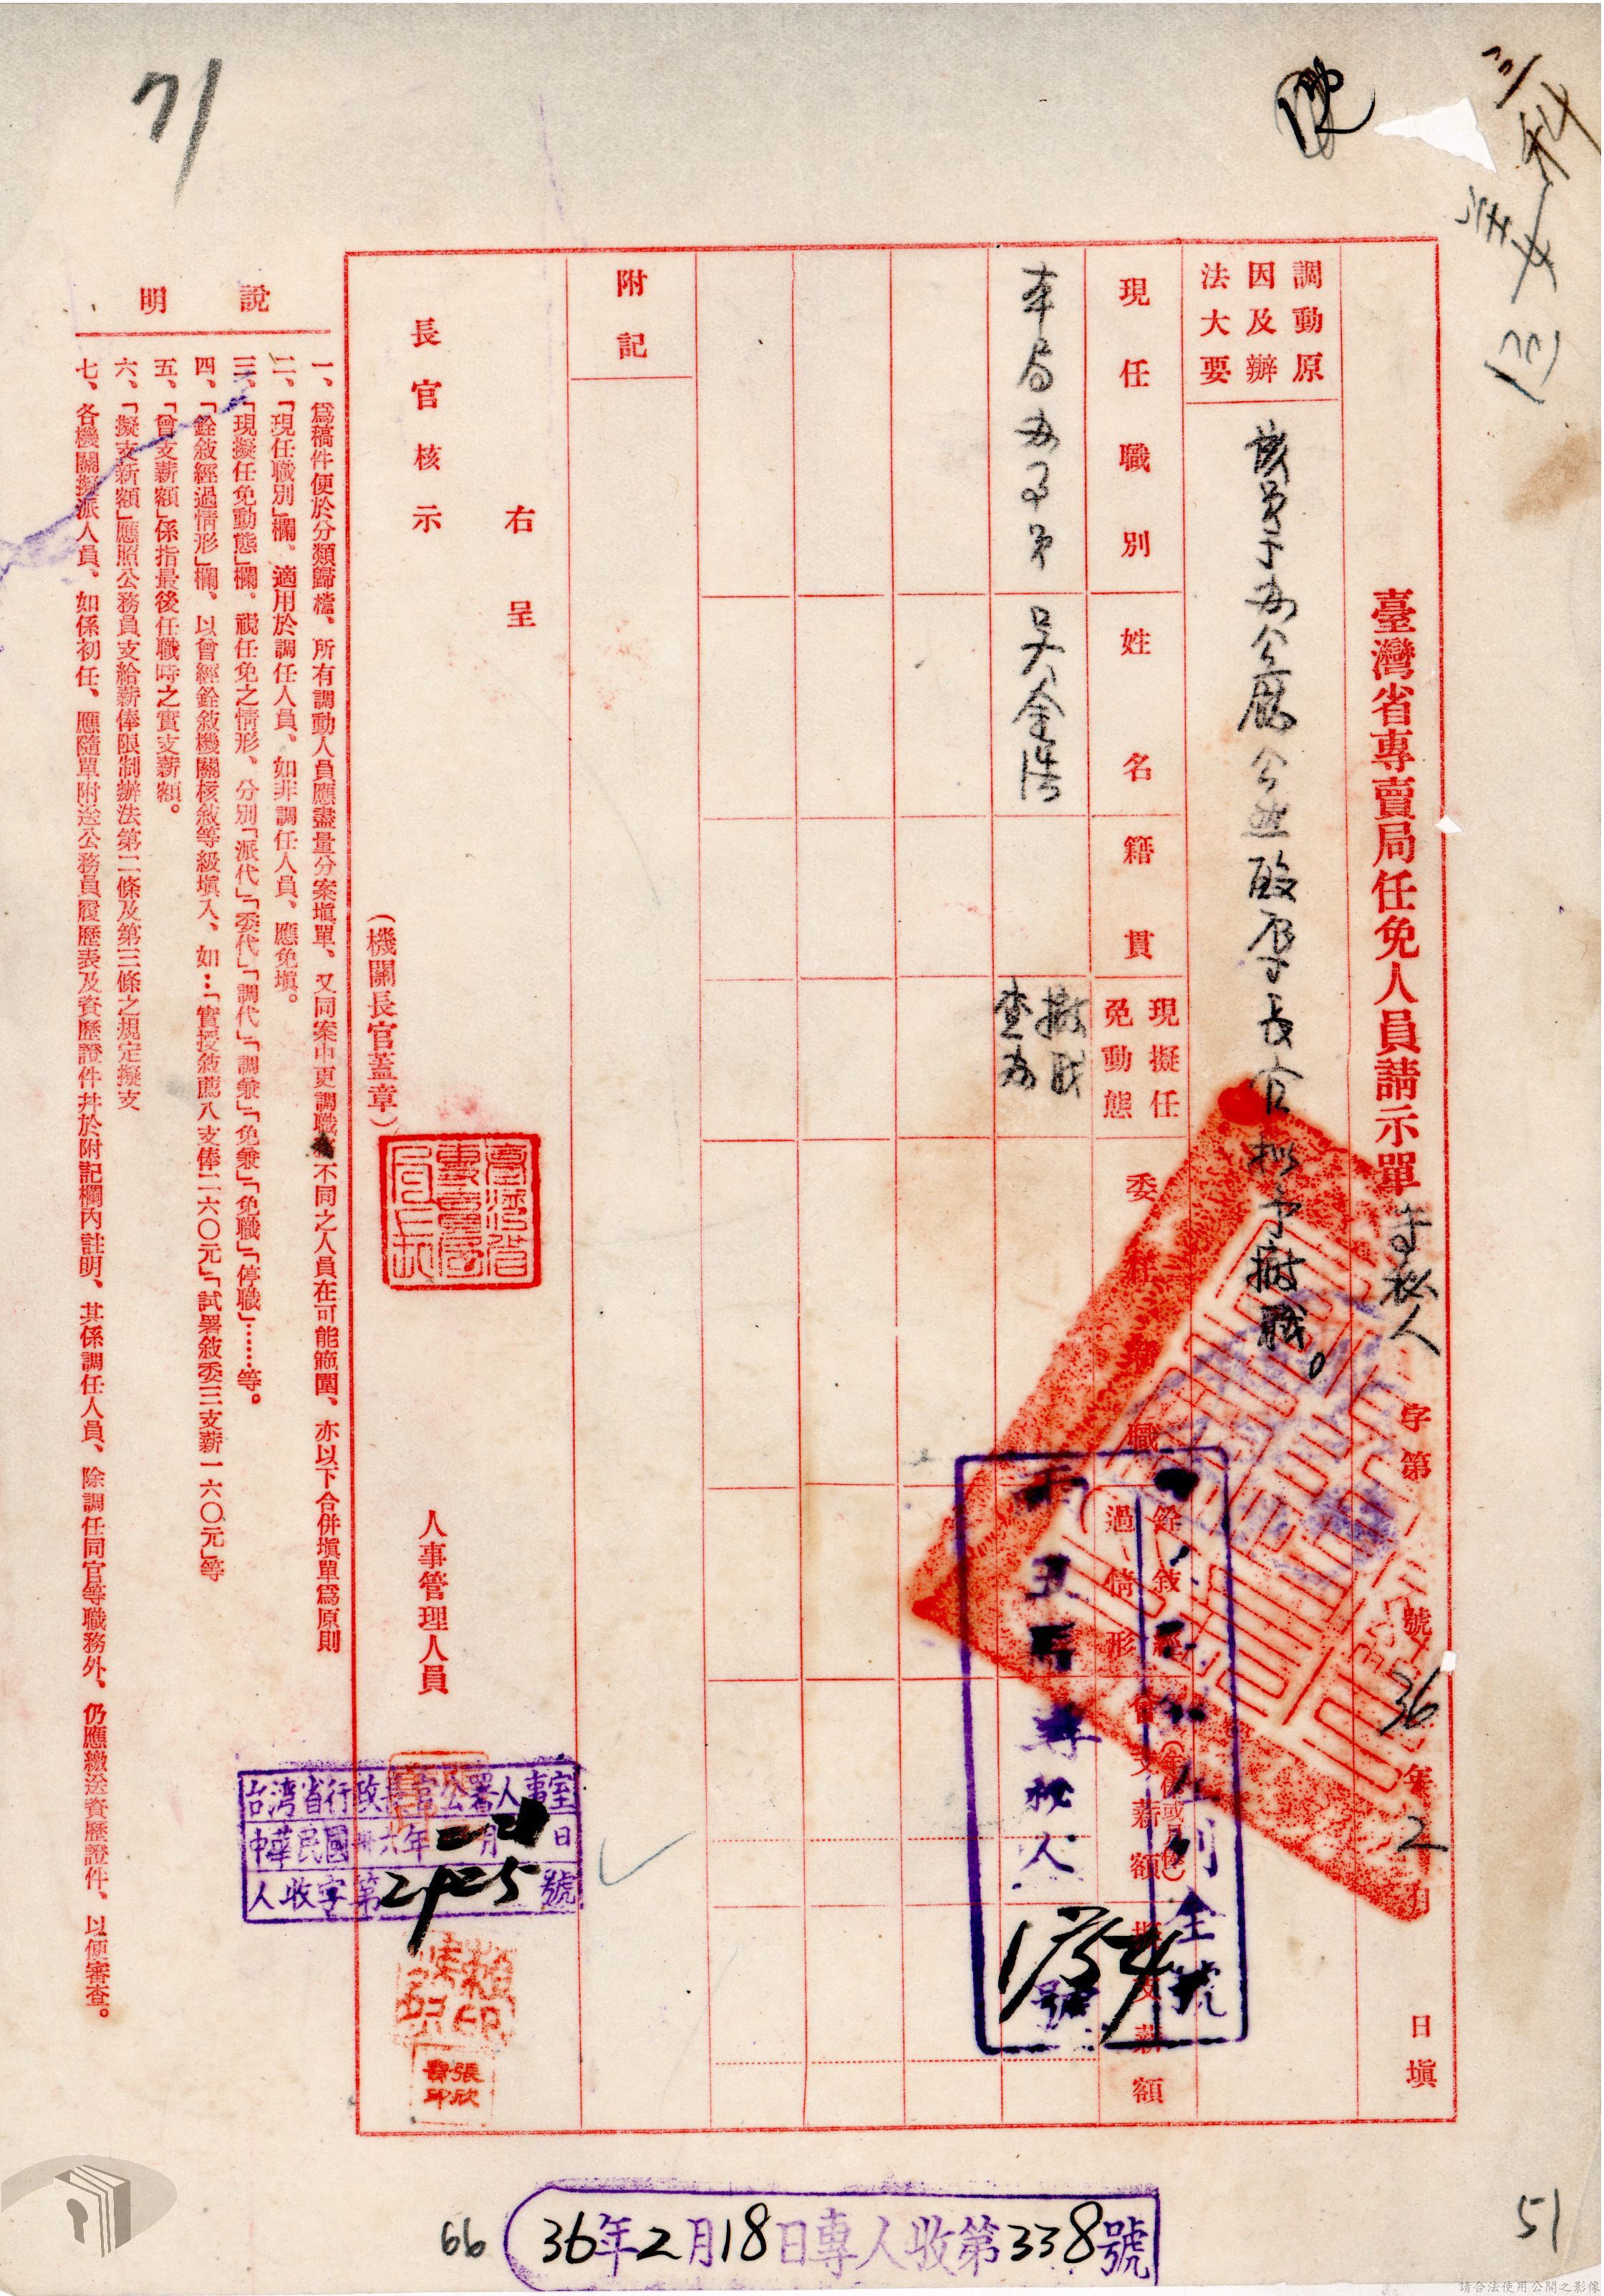 三科
71
臺灣省專賣局任免人員請示單 字第 號 36年2月 日塡
調動原因及辦法大要
該員于办公廳公然毆辱長官擬予撤職。
現任職別 姓名 籍貫 現擬任免動態 委任 職 銓敘經過情形 曾支薪額 擬支薪額
本局办事員 吳金浩 撤職查办
附記
右呈
長官核示
(機關長官蓋章)
人事管理人員
臺灣省專賣局局長印
專秘人 1754 號
全號
台湾省行政長官公署人事室
中華民國卅六年二月 日
人收字第2925號
賴 印
張欣 印
說明
一、爲稿件便於分類歸檔、所有調動人員應盡量分案塡單、又同案中更調職務不同之人員在可能範圍、亦以下合併塡單爲原則
二、「現任職別」欄、適用於調任人員、如非調任人員、應免塡。
三、「現擬任免動態」欄、視任免之情形、分別「派代」「委代」「調代」「調兼」「免兼」「免職」「停職」……等。
四、「銓敘經過情形」欄、以曾經銓敘機關核敘等級塡入、如…「實授敘薦八支俸二六〇元」「試署敘委三支薪一六〇元」等
五、「曾支薪額」係指最後任職時之實支薪額。
六、「擬支新額」應照公務員支給薪俸限制辦法第二條及第三條之規定擬支
七、各機關擬派人員、如係初任、應隨單附送公務員履歷表及資歷證件幷於附記欄內註明、其係調任人員、除調任同官等職務外、仍應繳送資歷證件、以便審查。
66
36年2月18日專人收第338號
51
請合法使用公開之影像